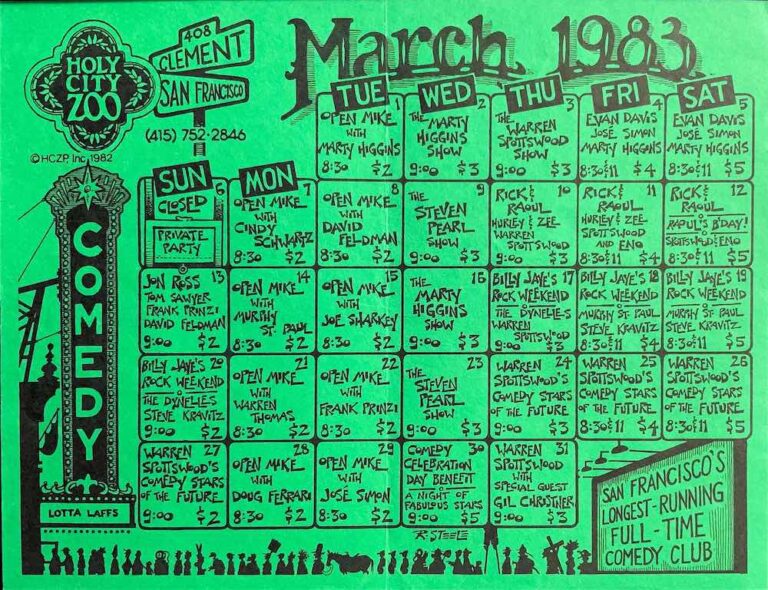 HOLY
CITY
ZOO
408
CLEMENT
SAN FRANCISCO
(415) 752-2846
©HCZP, Inc, 1982
March 1983
TUE
WED
THU
FRI
SAT
1
OPEN MIKE
WITH
MARTY HIGGINS
8:30 $2
2
THE
MARTY
HIGGINS
SHOW
9:00 $3
3
THE
WARREN
SPOTTSWOOD
SHOW
9:00 $3
4
EVAN DAVIS
JOSÉ SIMON
MARTY HIGGINS
8:30&11 $4
5
EVAN DAVIS
JOSÉ SIMON
MARTY HIGGINS
8:30&11 $5
SUN
MON
6
CLOSED
PRIVATE
PARTY
7
OPEN MIKE
WITH
CINDY
SCHWARTZ
8:30 $2
8
OPEN MIKE
WITH
DAVID
FELDMAN
8:30 $2
9
THE
STEVEN
PEARL
SHOW
9:00 $3
10
RICK &
RAOUL
HURLEY & ZEE
WARREN
SPOTTSWOOD
9:00 $3
11
RICK &
RAOUL
HURLEY & ZEE
SPOTTSWOOD
AND ENO
8:30&11 $4
12
RICK &
RAOUL
RAOUL'S B'DAY!
SPOTTSWOOD & ENO
8:30&11 $5
13
JON ROSS
TOM SAWYER
FRANK PRINZI
DAVID FELDMAN
9:00 $2
14
OPEN MIKE
WITH
MURPHY
ST. PAUL
8:30 $2
15
OPEN MIKE
WITH
JOE SHARKEY
8:30 $2
16
THE
MARTY
HIGGINS
SHOW
9:00 $3
BILLY JAYE'S 17
ROCK WEEKEND
THE DYNELLES
WARREN
SPOTTSWOOD
9:00 $3
BILLY JAYE'S 18
ROCK WEEKEND
MURPHY ST. PAUL
STEVE KRAVITZ
8:30&11 $4
BILLY JAYE'S 19
ROCK WEEKEND
MURPHY ST. PAUL
STEVE KRAVITZ
8:30&11 $5
BILLY JAYE'S 20
ROCK WEEKEND
THE DYNELLES
STEVE KRAVITZ
9:00 $2
21
OPEN MIKE
WITH
WARREN
THOMAS
8:30 $2
22
OPEN MIKE
WITH
FRANK PRINZI
8:30 $2
23
THE
STEVEN
PEARL
SHOW
9:00 $3
WARREN 24
SPOTTSWOOD'S
COMEDY STARS
OF THE FUTURE
9:00 $3
WARREN 25
SPOTTSWOOD'S
COMEDY STARS
OF THE FUTURE
8:30&11 $4
WARREN 26
SPOTTSWOOD'S
COMEDY STARS
OF THE FUTURE
8:30&11 $5
WARREN 27
SPOTTSWOOD'S
COMEDY STARS
OF THE FUTURE
9:00 $2
28
OPEN MIKE
WITH
DOUG FERRARI
8:30 $2
29
OPEN MIKE
WITH
JOSÉ SIMON
8:30 $2
COMEDY 30
CELEBRATION
DAY BENEFIT
A NIGHT OF
FABULOUS STARS
9:00 $5
WARREN 31
SPOTTSWOOD
WITH
SPECIAL GUEST
GIL CHRISTNER
9:00 $3
COMEDY
LOTTA LAFFS
R. STEELE
SAN FRANCISCO'S
LONGEST-RUNNING
FULL-TIME
COMEDY CLUB